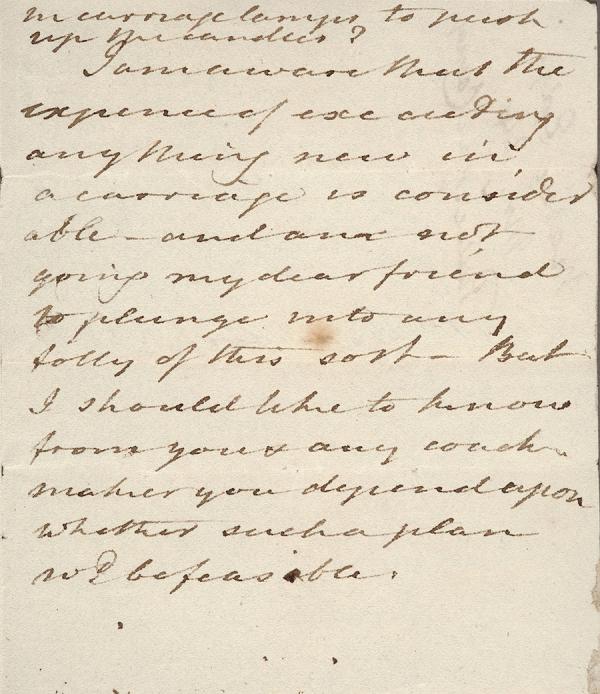 in carriage lamps to push
up the candles?
I am aware that the
expence of executing
any thing new in
a carriage is consider
able - and am not
going my dear friend
to plunge into any
folly of this sort - But
I should like to know
from you & any coach
maker you depend upon
whether such a plan
wd be feasible.